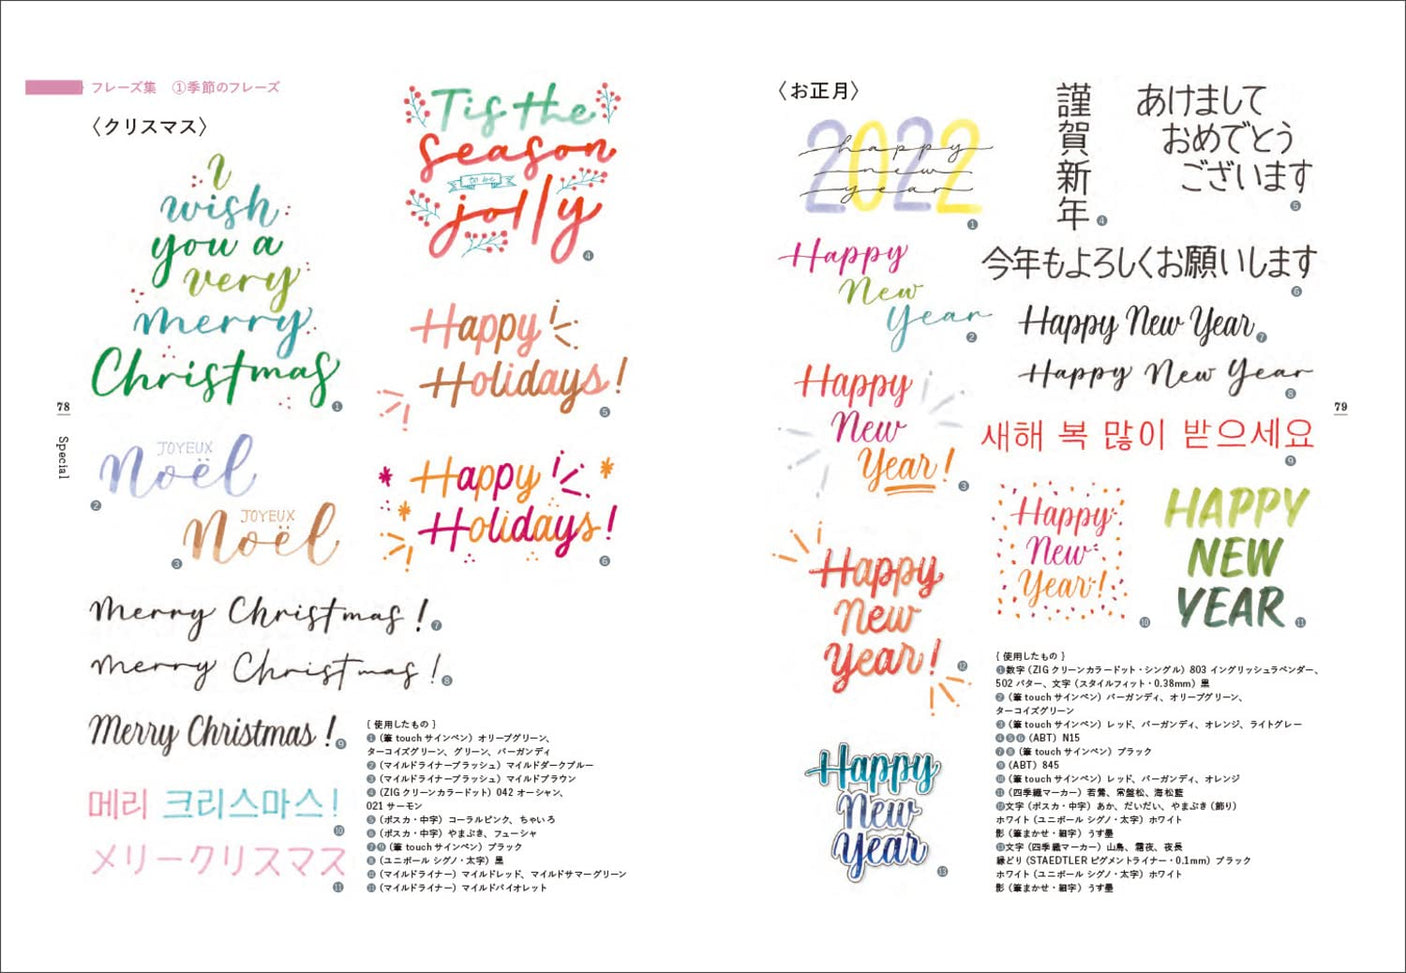 フレーズ集 ①季節のフレーズ
〈クリスマス〉
I
wish
you a
very
merry
Christmas
❶
JOYEUX
Noël
❷
JOYEUX
Noël
❸
Tis the
season
to be
jolly
❹
Happy
Holidays!
❺
Happy
Holidays!
❻
Merry Christmas! ❼
Merry Christmas! ❽
Merry Christmas! ❾
메리 크리스마스!
❿
メリークリスマス
⓫
{ 使用したもの }
❶(筆touchサインペン)オリーブグリーン、
ターコイズグリーン、グリーン、バーガンディ
❷(マイルドライナーブラッシュ)マイルドダークブルー
❸(マイルドライナーブラッシュ)マイルドブラウン
❹(ZIGクリーンカラードット)042 オーシャン、
021 サーモン
❺(ポスカ・中字)コーラルピンク、ちゃいろ
❻(ポスカ・中字)やまぶき、フューシャ
❼❾(筆touchサインペン)ブラック
❽(ユニボール シグノ・太字)黒
❿(マイルドライナー)マイルドレッド、マイルドサマーグリーン
⓫(マイルドライナー)マイルドバイオレット
78
Special
〈お正月〉
2022
happy
new
year
❶
Happy
New
Year
❷
Happy
New
Year!
❸
謹賀新年
❹
あけまして
おめでとう
ございます
❺
今年もよろしくお願いします
❻
Happy New Year ❼
Happy New Year
❽
새해 복 많이 받으세요
❾
Happy
New
Year!
❿
HAPPY
NEW
YEAR
⓫
Happy
New
Year!
⓬
Happy
New
Year
⓭
{ 使用したもの }
❶数字(ZIGクリーンカラードット・シングル)803 イングリッシュラベンダー、
502 バター、文字(スタイルフィット・0.38mm)黒
❷(筆touchサインペン)バーガンディ、オリーブグリーン、
ターコイズグリーン
❸(筆touchサインペン)レッド、バーガンディ、オレンジ、ライトグレー
❹❺❻(ABT)N15
❼❽(筆touchサインペン)ブラック
❾(ABT)845
❿(筆touchサインペン)レッド、バーガンディ、オレンジ
⓫(四季織マーカー)若鶯、常盤松、海松藍
⓬文字(ポスカ・中字)あか、だいだい、やまぶき(飾り)
ホワイト(ユニボール シグノ・太字)ホワイト
影(筆まかせ・細字)うす墨
⓭文字(四季織マーカー)山鳥、霜夜、夜長
縁どり(STAEDTLERピグメントライナー・0.1mm)ブラック
ホワイト(ユニボール シグノ・太字)ホワイト
影(筆まかせ・細字)うす墨
79